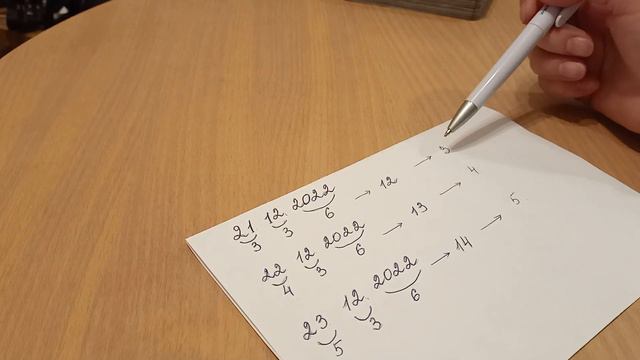 21 12. 2022 → 12 → 3
3 3 6
22 12 2022 → 13 → 4
4 3 6
23 12. 2022 → 14 → 5
5 3 6